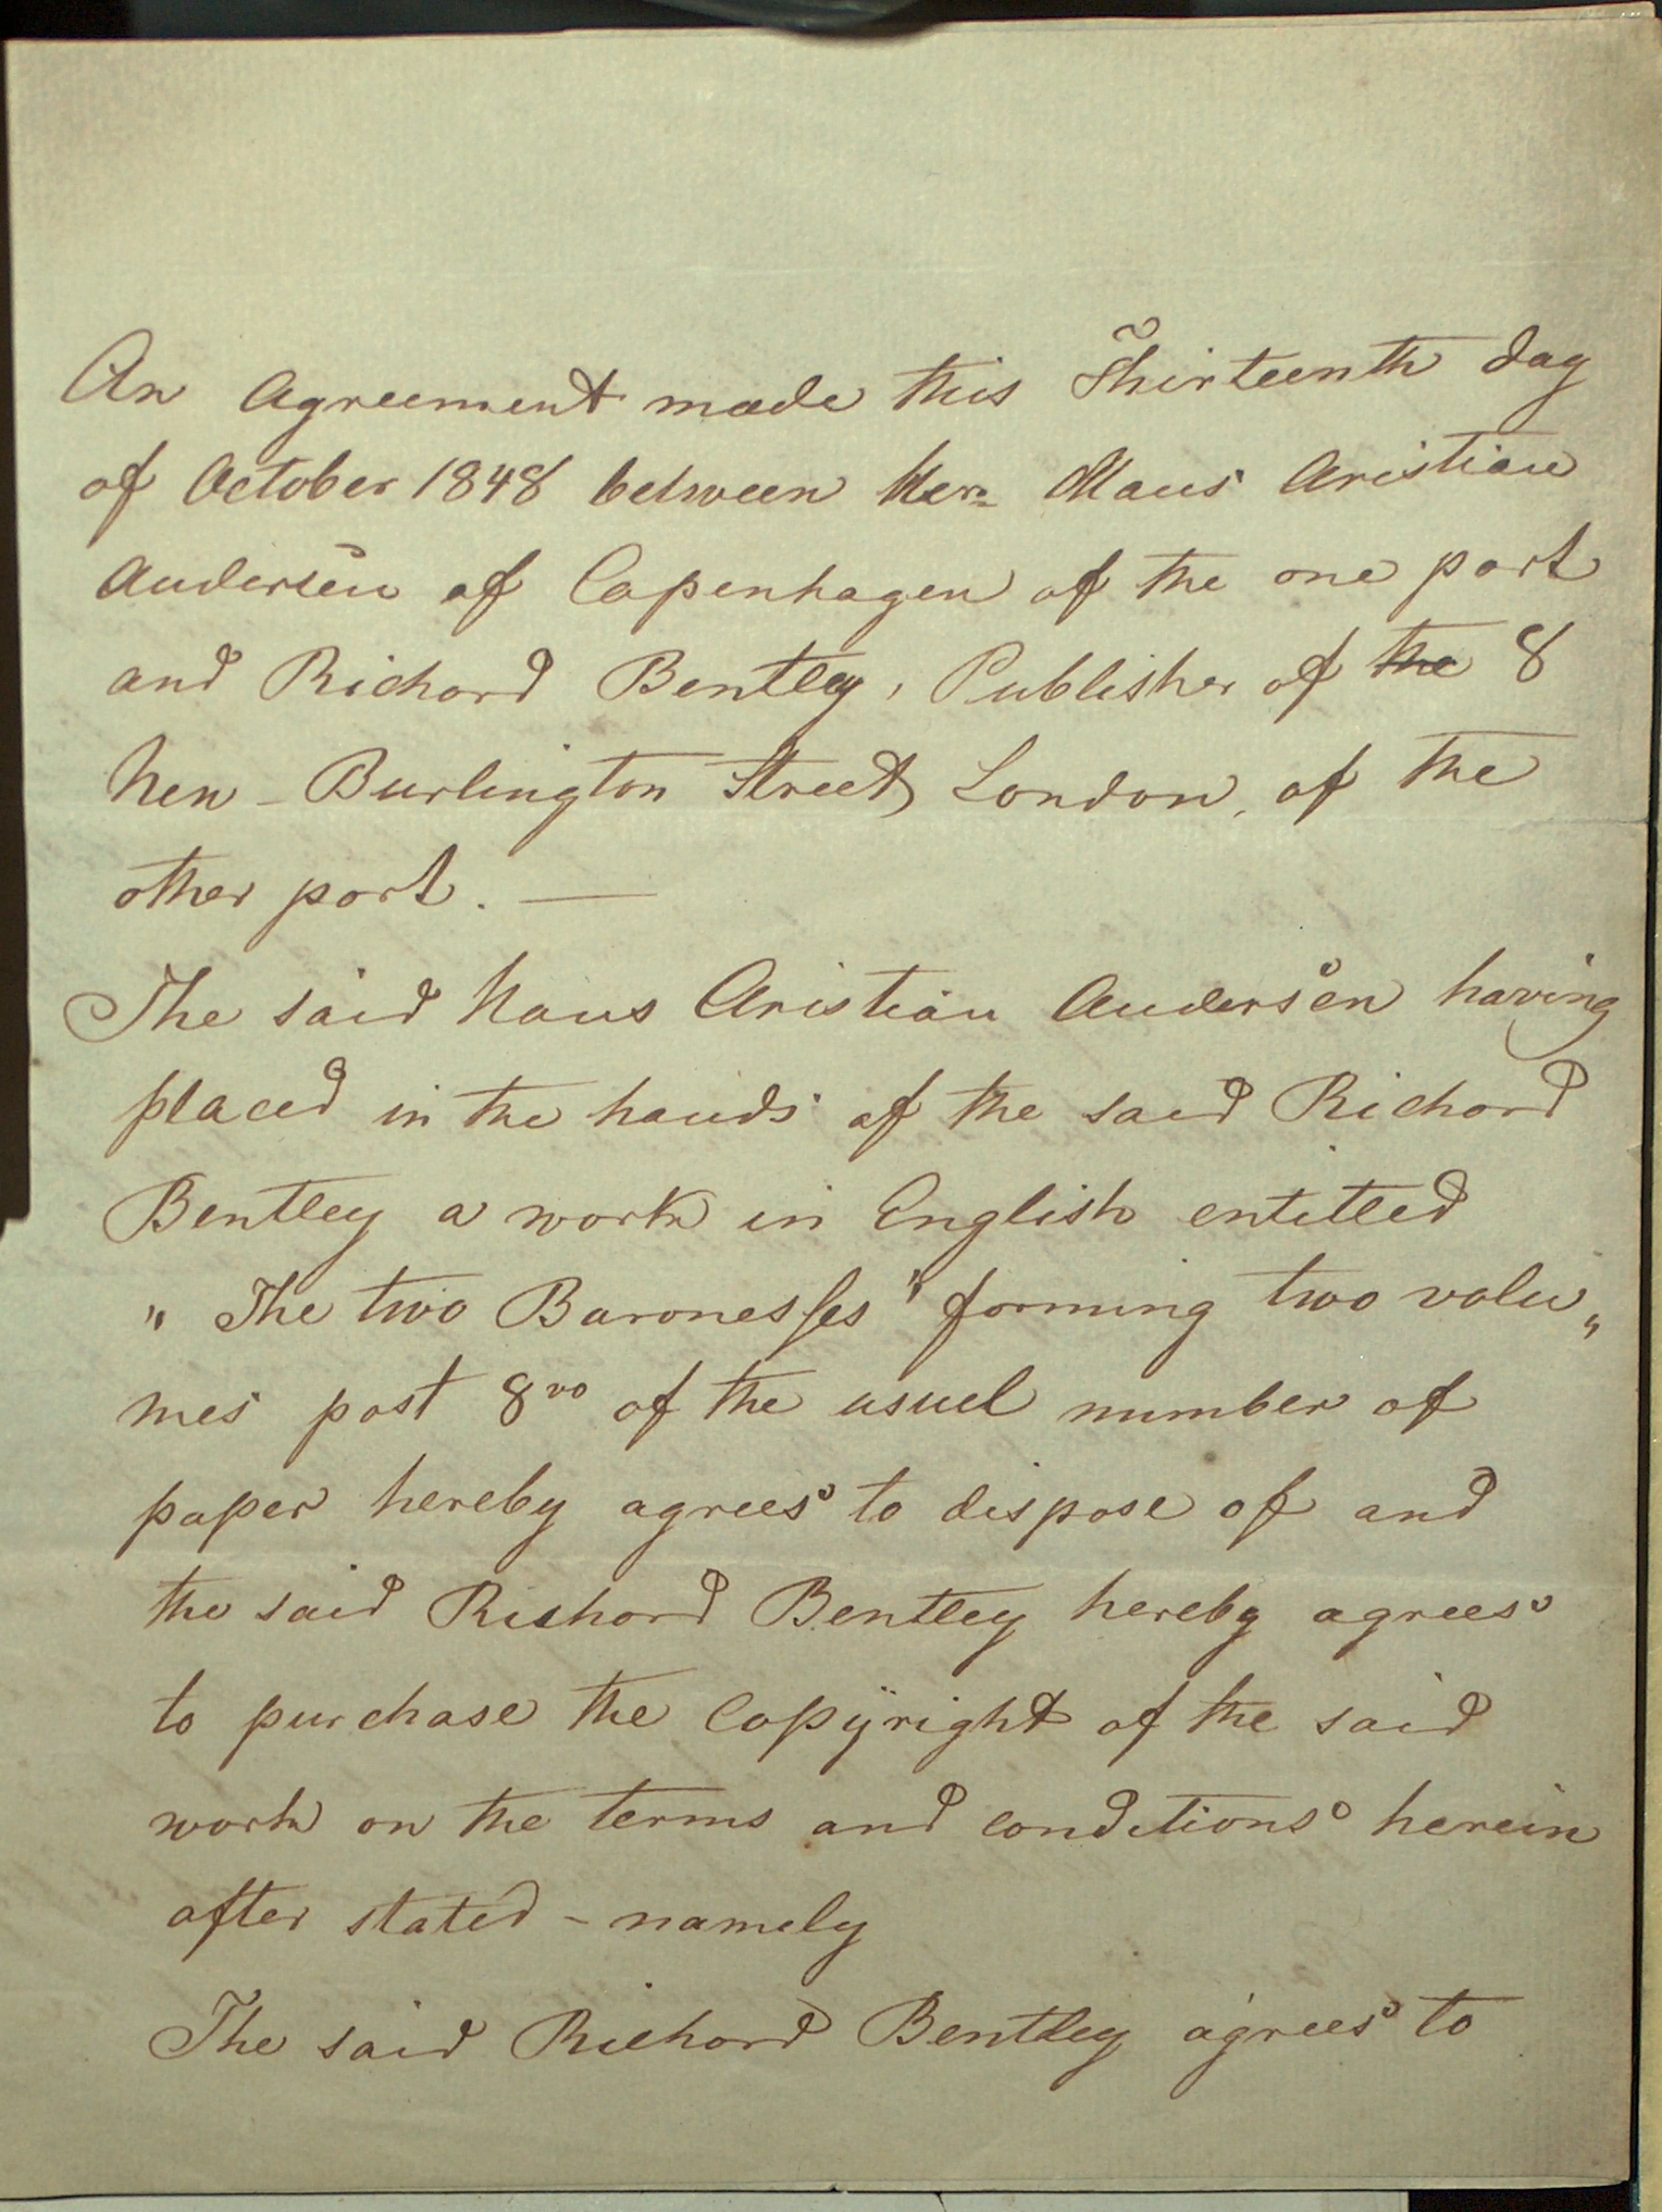 An Agreement made this Thirteenth day
of October 1848 between Herr Hans Cristian
Andersen of Copenhagen of the one part
and Richard Bentley, Publisher of the 8
New-Burlington Street London, of the
other part. —
The said Hans Cristian Andersen having
placed in the hands of the said Richard
Bentley a work in English entitled
"The two Baronesses" forming two volu„
mes post 8vo of the usuel number of
paper hereby agrees to dispose of and
the said Richard Bentley hereby agrees
to purchase the Copÿright of the said
work on the terms and conditions herein
after stated - namely
The said Richard Bentley agrees to